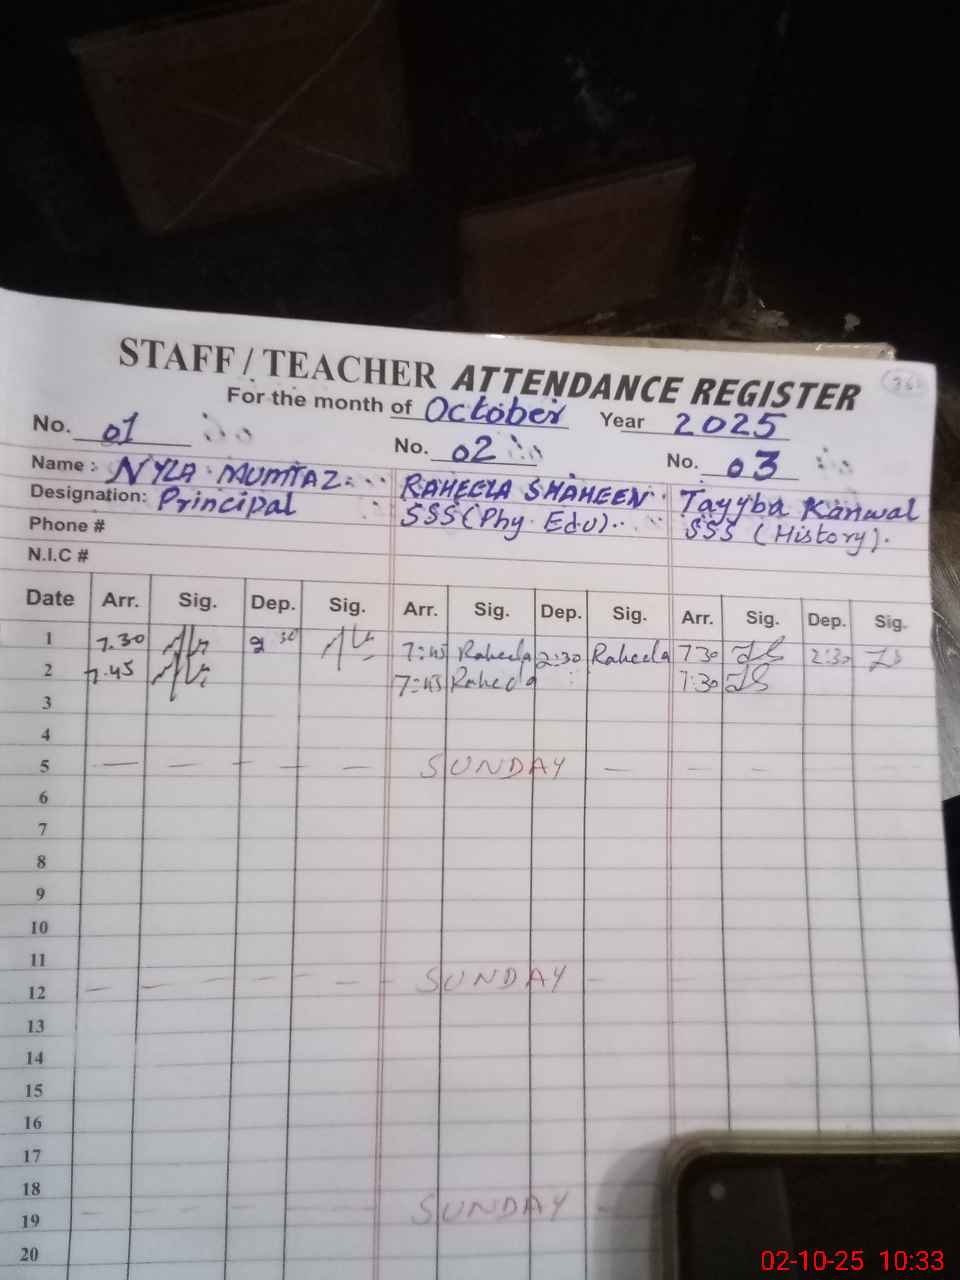 STAFF / TEACHER ATTENDANCE REGISTER
For the month of October Year 2025
No. 01 No. 02 No. 03
Name : NYLA MUMTAZ RAHEELA SHAHEEN Tayyba Kanwal
Designation: Principal SSS (Phy Edu) SSS (History).
Phone #
N.I.C #
Date Arr. Sig. Dep. Sig. Arr. Sig. Dep. Sig. Arr. Sig. Dep. Sig.
1 7.30 2 30 7:45 Raheela 2:30 Raheela 7 30 2:30
2 7.45 7:45 Raheela 7:30
3
4
5 SUNDAY
6
7
8
9
10
11
12 SUNDAY
13
14
15
16
17
18
19 SUNDAY
20
02-10-25 10:33